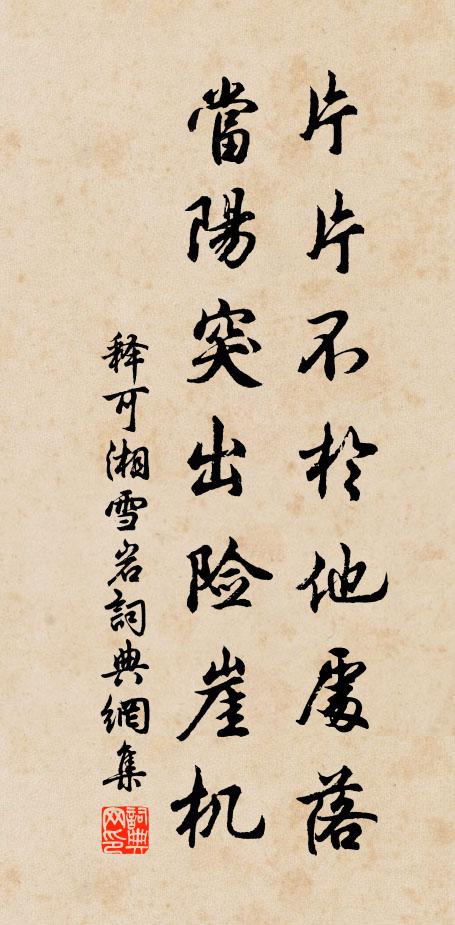 片片不於他處落
當陽突出险崖机
释可湘雪岩詞典網集
詞典網印